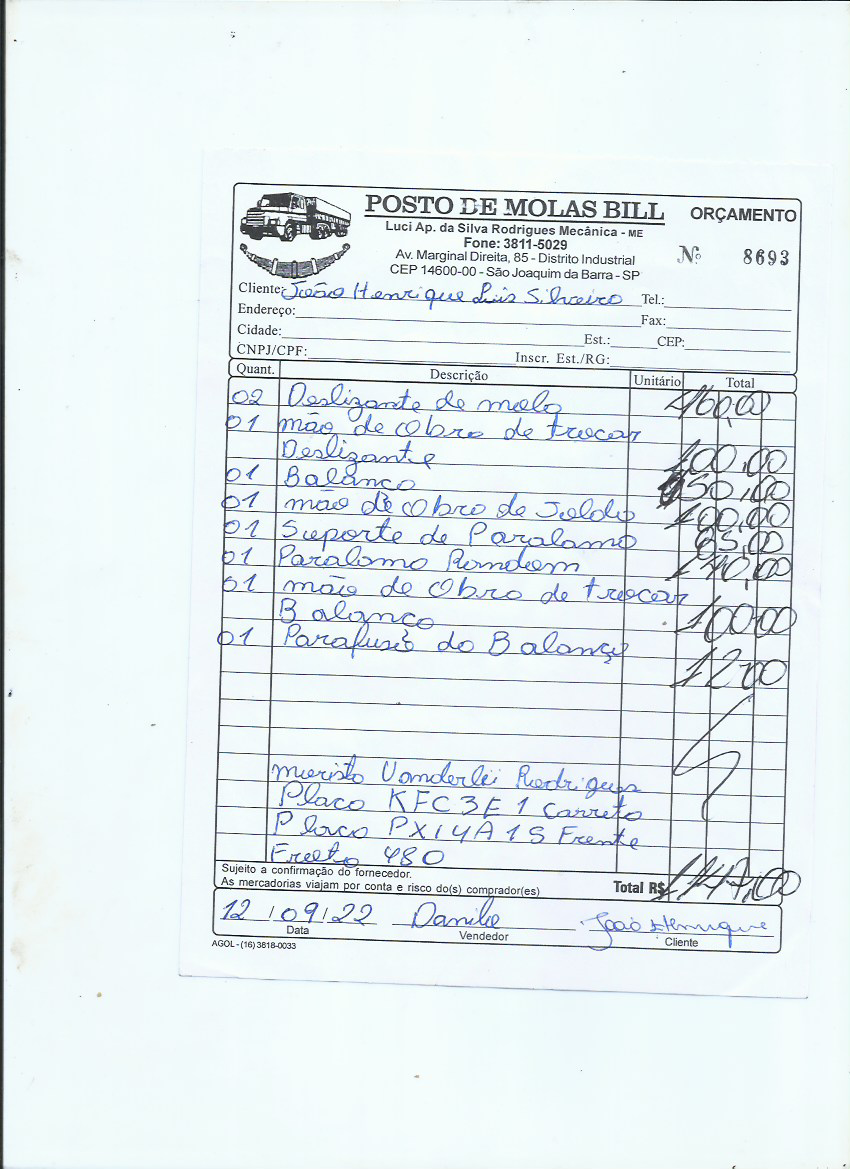 POSTO DE MOLAS BILL ORÇAMENTO
Luci Ap. da Silva Rodrigues Mecânica - ME
Fone: 3811-5029
Av. Marginal Direita, 85 - Distrito Industrial
CEP 14600-00 - São Joaquim da Barra - SP
Nº 8693
Cliente: João Henrique Luis Silveiro Tel.:
Endereço: Fax:
Cidade: Est.: CEP:
CNPJ/CPF: Inscr. Est./RG:
Quant. Descrição Unitário Total
02 Deslizante de molo 160,00
01 mão de obro de trocar
Deslizante 100,00
01 Balanco 350,00
01 mão de obro de Soldo 100,00
01 Suporte de Paralamo 85,00
01 Paralamo Rondom 140,00
01 mão de obro de trocar
Balanco 100,00
01 Parafuso do Balanço
112,00
moristo Vanderlei Rodrigues
Placo KFC3E 1 Carreto
Placo PXI4A15 Frente
Freeto 480
Sujeito a confirmação do fornecedor.
As mercadorias viajam por conta e risco do(s) comprador(es) Total R$ 1147,00
12/09/22 Danilo João Henrique
Data Vendedor Cliente
AGOL - (16) 3818-0033